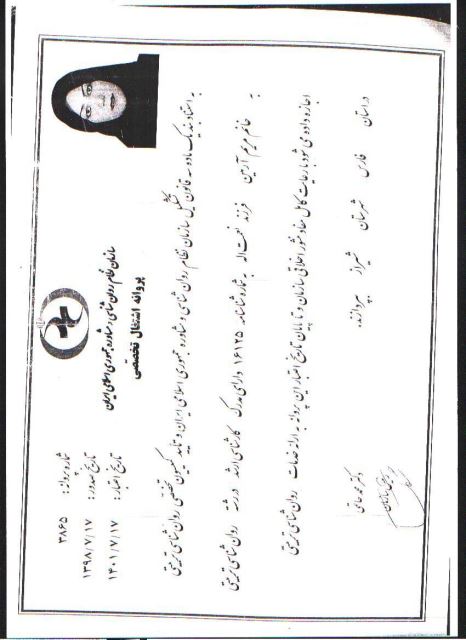 سازمان نظام روان شناسی و مشاوره جمهوری اسلامی ایران
پروانه اشتغال تخصصی
شماره پروانه: ۳۸۶۵
تاریخ صدور: ۱۳۹۸/۷/۱۷
تاریخ اعتبار: ۱۴۰۱/۷/۱۷
به استناد بند یک ماده سه قانون تشکیل سازمان نظام روان شناسی و مشاوره جمهوری اسلامی ایران و تأیید کمیسیون تخصصی روان شناسی تربیتی
به خانم مریم آرمین فرزند نعمت اله به شماره شناسنامه ۱۶۱۲۵ دارای مدرک کارشناسی ارشد در رشته روان شناسی تربیتی
اجازه داده می شود با رعایت کامل مفاد منشور اخلاقی سازمان و تا پایان تاریخ اعتبار این پروانه به ارائه خدمات روان شناسی تربیتی
در استان فارس شهرستان شیراز بپردازند.
دکتر محمد حاتمی